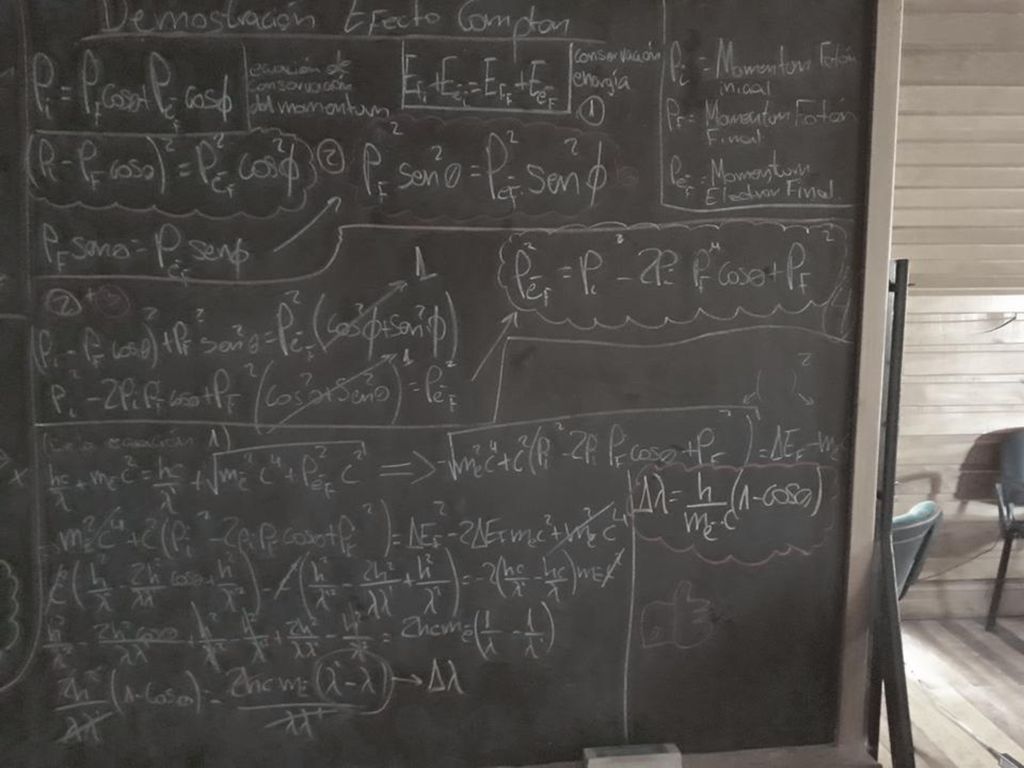 Demostración Efecto Compton
P_i = P_F cosθ + P_ēF cosϕ
ecuación de conservación del momentum
E_i + E_ei = E_fF + E_ēF
conservación energía ①
P_i = Momentum Fotón inicial
P_F = Momentum Fotón Final
P_ēF = Momentum Electron Final
(P_i - P_F cosθ)² = P²_ēF cos²ϕ ②
P_F² sen²θ = P²_ēF sen²ϕ
P_F senθ = P_ēF senϕ
P²_ēF = P_i² - 2P_i P_F cosθ + P_F²
② +
(P_i - P_F cosθ)² + P_F² sen²θ = P²_ēF (cos²ϕ + sen²ϕ) 1
P_i² - 2P_i P_F cosθ + P_F² (cos²θ + sen²θ) 1 = P²_ēF
ecuación 1)
hc/λ + m_ē c² = hc/λ' + √(m_ē² c⁴ + P²_ēF c²) ⇒ √(m_ē² c⁴ + c²(P_i² - 2P_i P_F cosθ + P_F²)) = ΔE_F + m_ē c²
m_ē² c⁴ + c²(P_i² - 2P_i P_F cosθ + P_F²) = ΔE_F² - 2ΔE_F m_ē c² + m_ē² c⁴
Δλ = h/(m_ē c) (1 - cosθ)
c²(h²/λ² - 2h²/λλ' cosθ + h²/λ'²) - c²(h²/λ² - 2h²/λλ' + h²/λ'²) = -2(hc/λ' - hc/λ) m_E c²
h²/λ² - 2h² cosθ/λλ' + h²/λ'² - h²/λ² + 2h²/λλ' - h²/λ'² = 2hcm_e (1/λ - 1/λ')
2h²/λλ' (1 - cosθ) = 2hcm_E (λ' - λ)/λλ' → Δλ